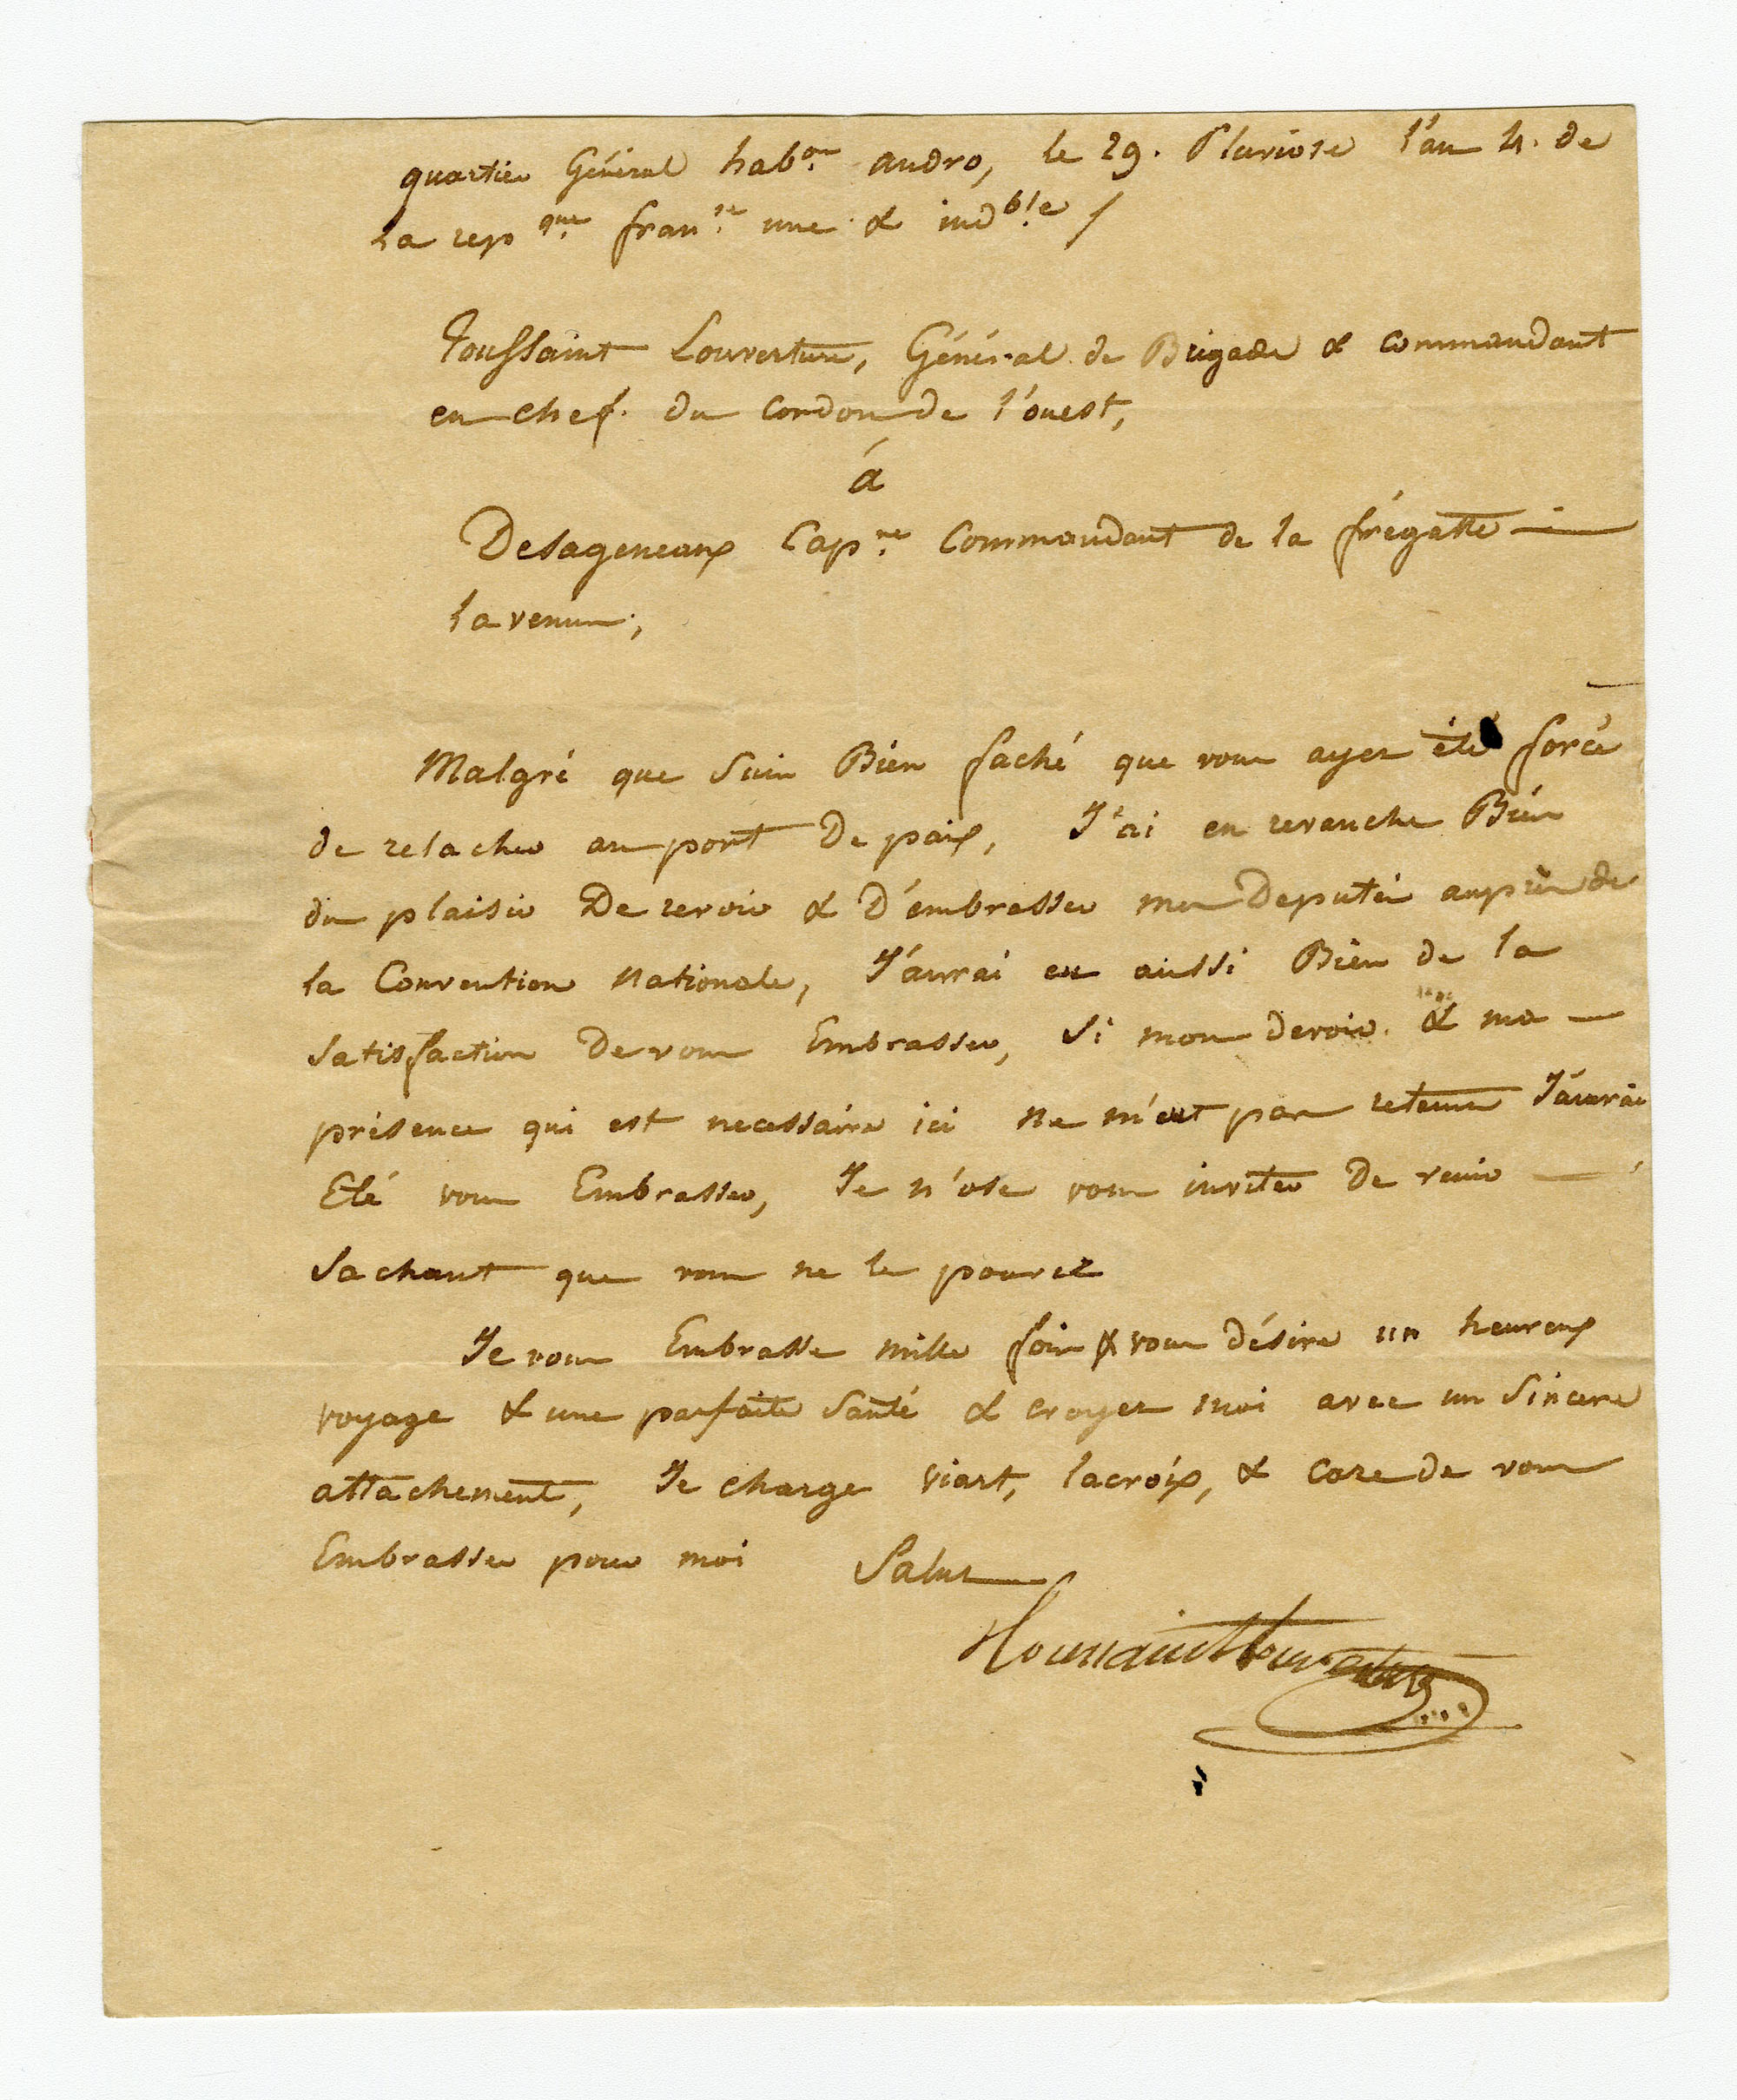 quartier Général habon. andro, le 29. Pluviose l'an 4. de
La repque. franse. une & indble /
Toussaint Louverture, Général de Brigade & commandant
en chef. du Cordon de l'ouest,
á
Desageneaux Capne. Commandant de la frégatte —
la venus;
Malgré que suis Bien faché que vous ayez été forcé
de relacher au port De paix, J'ai en revanche Bien
du plaisir De revoir & D'émbrasser mes Deputés auprès de
la Convention Nationale, J'aurai eu aussi Bien de la
satisfaction De vous Embrasser, Si mon devoir. & ma —
présence qui est necessaire ici ne m'eut pas retenue J'aurai
Eté vous Embrasser, Je n'ose vous inviter De venir —
Sachant que vous ne le pourez
Je vous Embrasse mille fois & vous désire un heureux
voyage & une parfaite Santé & croyez moi avec un Sincere
attachement, Je charge Viart, lacroix, & Caze de vous
Embrasser pour moi Salut
Toussaint Louverture